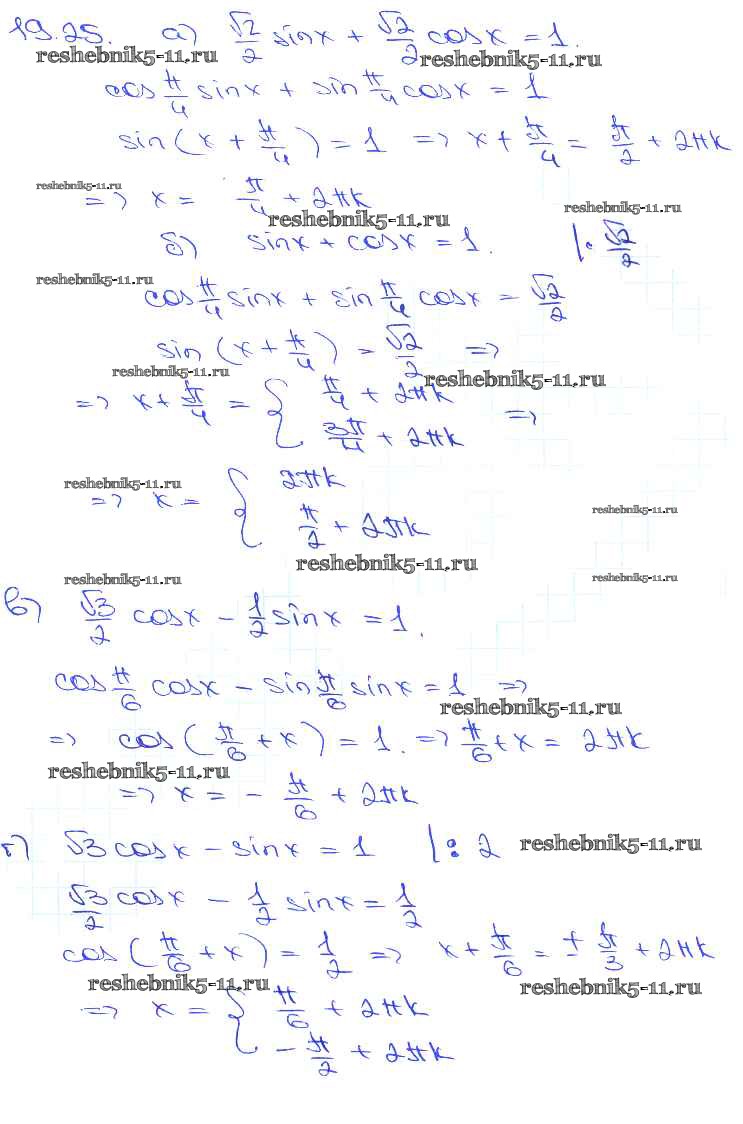 19.25. а) √2/2 sinx + √2/2 cosx = 1.
reshebnik5-11.ru reshebnik5-11.ru
cos π/4 sinx + sin π/4 cosx = 1
sin(x + π/4) = 1 => x + π/4 = π/2 + 2πk
reshebnik5-11.ru
=> x = π/4 + 2πk
reshebnik5-11.ru reshebnik5-11.ru
б) sinx + cosx = 1. |: √2/2
reshebnik5-11.ru
cos π/4 sinx + sin π/4 cosx = √2/2
sin (x + π/4) = √2/2 =>
reshebnik5-11.ru reshebnik5-11.ru
=> x + π/4 = { π/4 + 2πk
3π/4 + 2πk =>
reshebnik5-11.ru
=> x = { 2πk
π/2 + 2πk
reshebnik5-11.ru
reshebnik5-11.ru
reshebnik5-11.ru reshebnik5-11.ru
в) √3/2 cosx - 1/2 sinx = 1.
cos π/6 cosx - sin π/6 sinx = 1 =>
reshebnik5-11.ru
=> cos (π/6 + x) = 1. => π/6 + x = 2πk
reshebnik5-11.ru
=> x = - π/6 + 2πk
г) √3 cosx - sinx = 1 |: 2 reshebnik5-11.ru
√3/2 cosx - 1/2 sinx = 1/2
cos (π/6 + x) = 1/2 => x + π/6 = ± π/3 + 2πk
reshebnik5-11.ru reshebnik5-11.ru
=> x = { π/6 + 2πk
- π/2 + 2πk